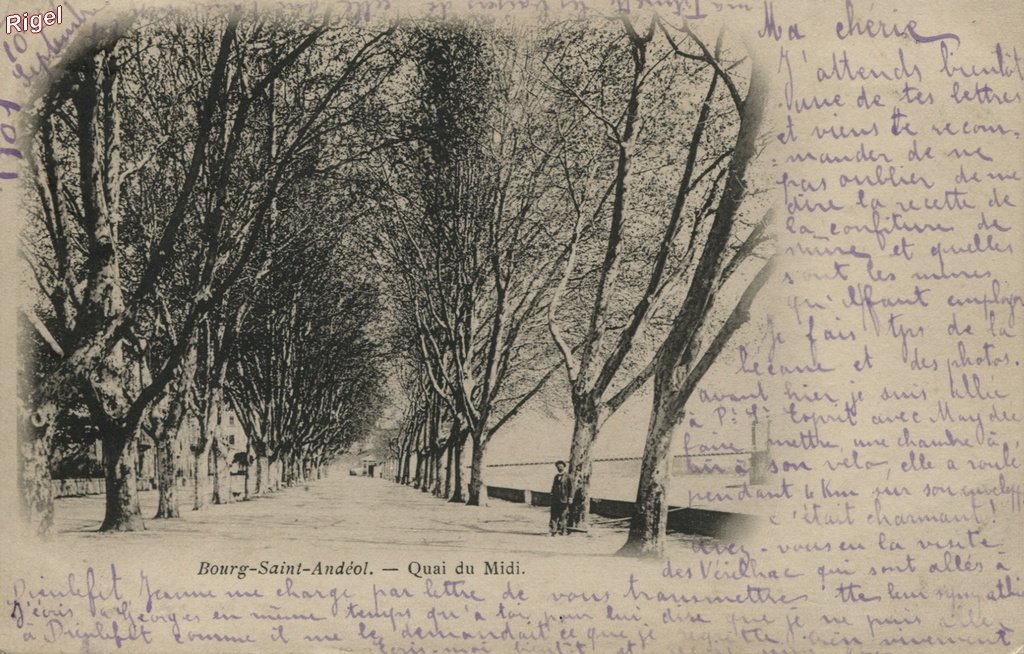 Rigel
10 Septemb
1901
Ma chérie
J'attends bientôt
une de tes lettres
et viens te recom-
mander de ne
pas oublier de me
dire la recette de
la confiture de
mûre et quelles
sont les mures
qu'il faut employer
Je fais tjs de la
bécane et des photos.
avant hier je suis allée
à Pt St Esprit avec
faire mettre une chambre à
air à son vélo, elle a roulé
pendant 4 Km sur son
c'était charmant!
avez-vous eu la visite
des Verilhac qui sont allés à
Dieulefit Jeanne me charge par lettre de vous transmettre tte leur sympathie
J'écris à Georges en même temps qu'à toi pour lui dire que je ne puis aller
à Dieulefit comme il me le demandait ce que je regrette bien vivement
Ecris-moi bientôt et
Bourg-Saint-Andéol. — Quai du Midi.